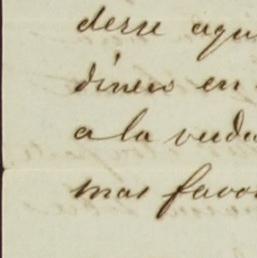 derse aqu
dinero en
a la verda
mas favor